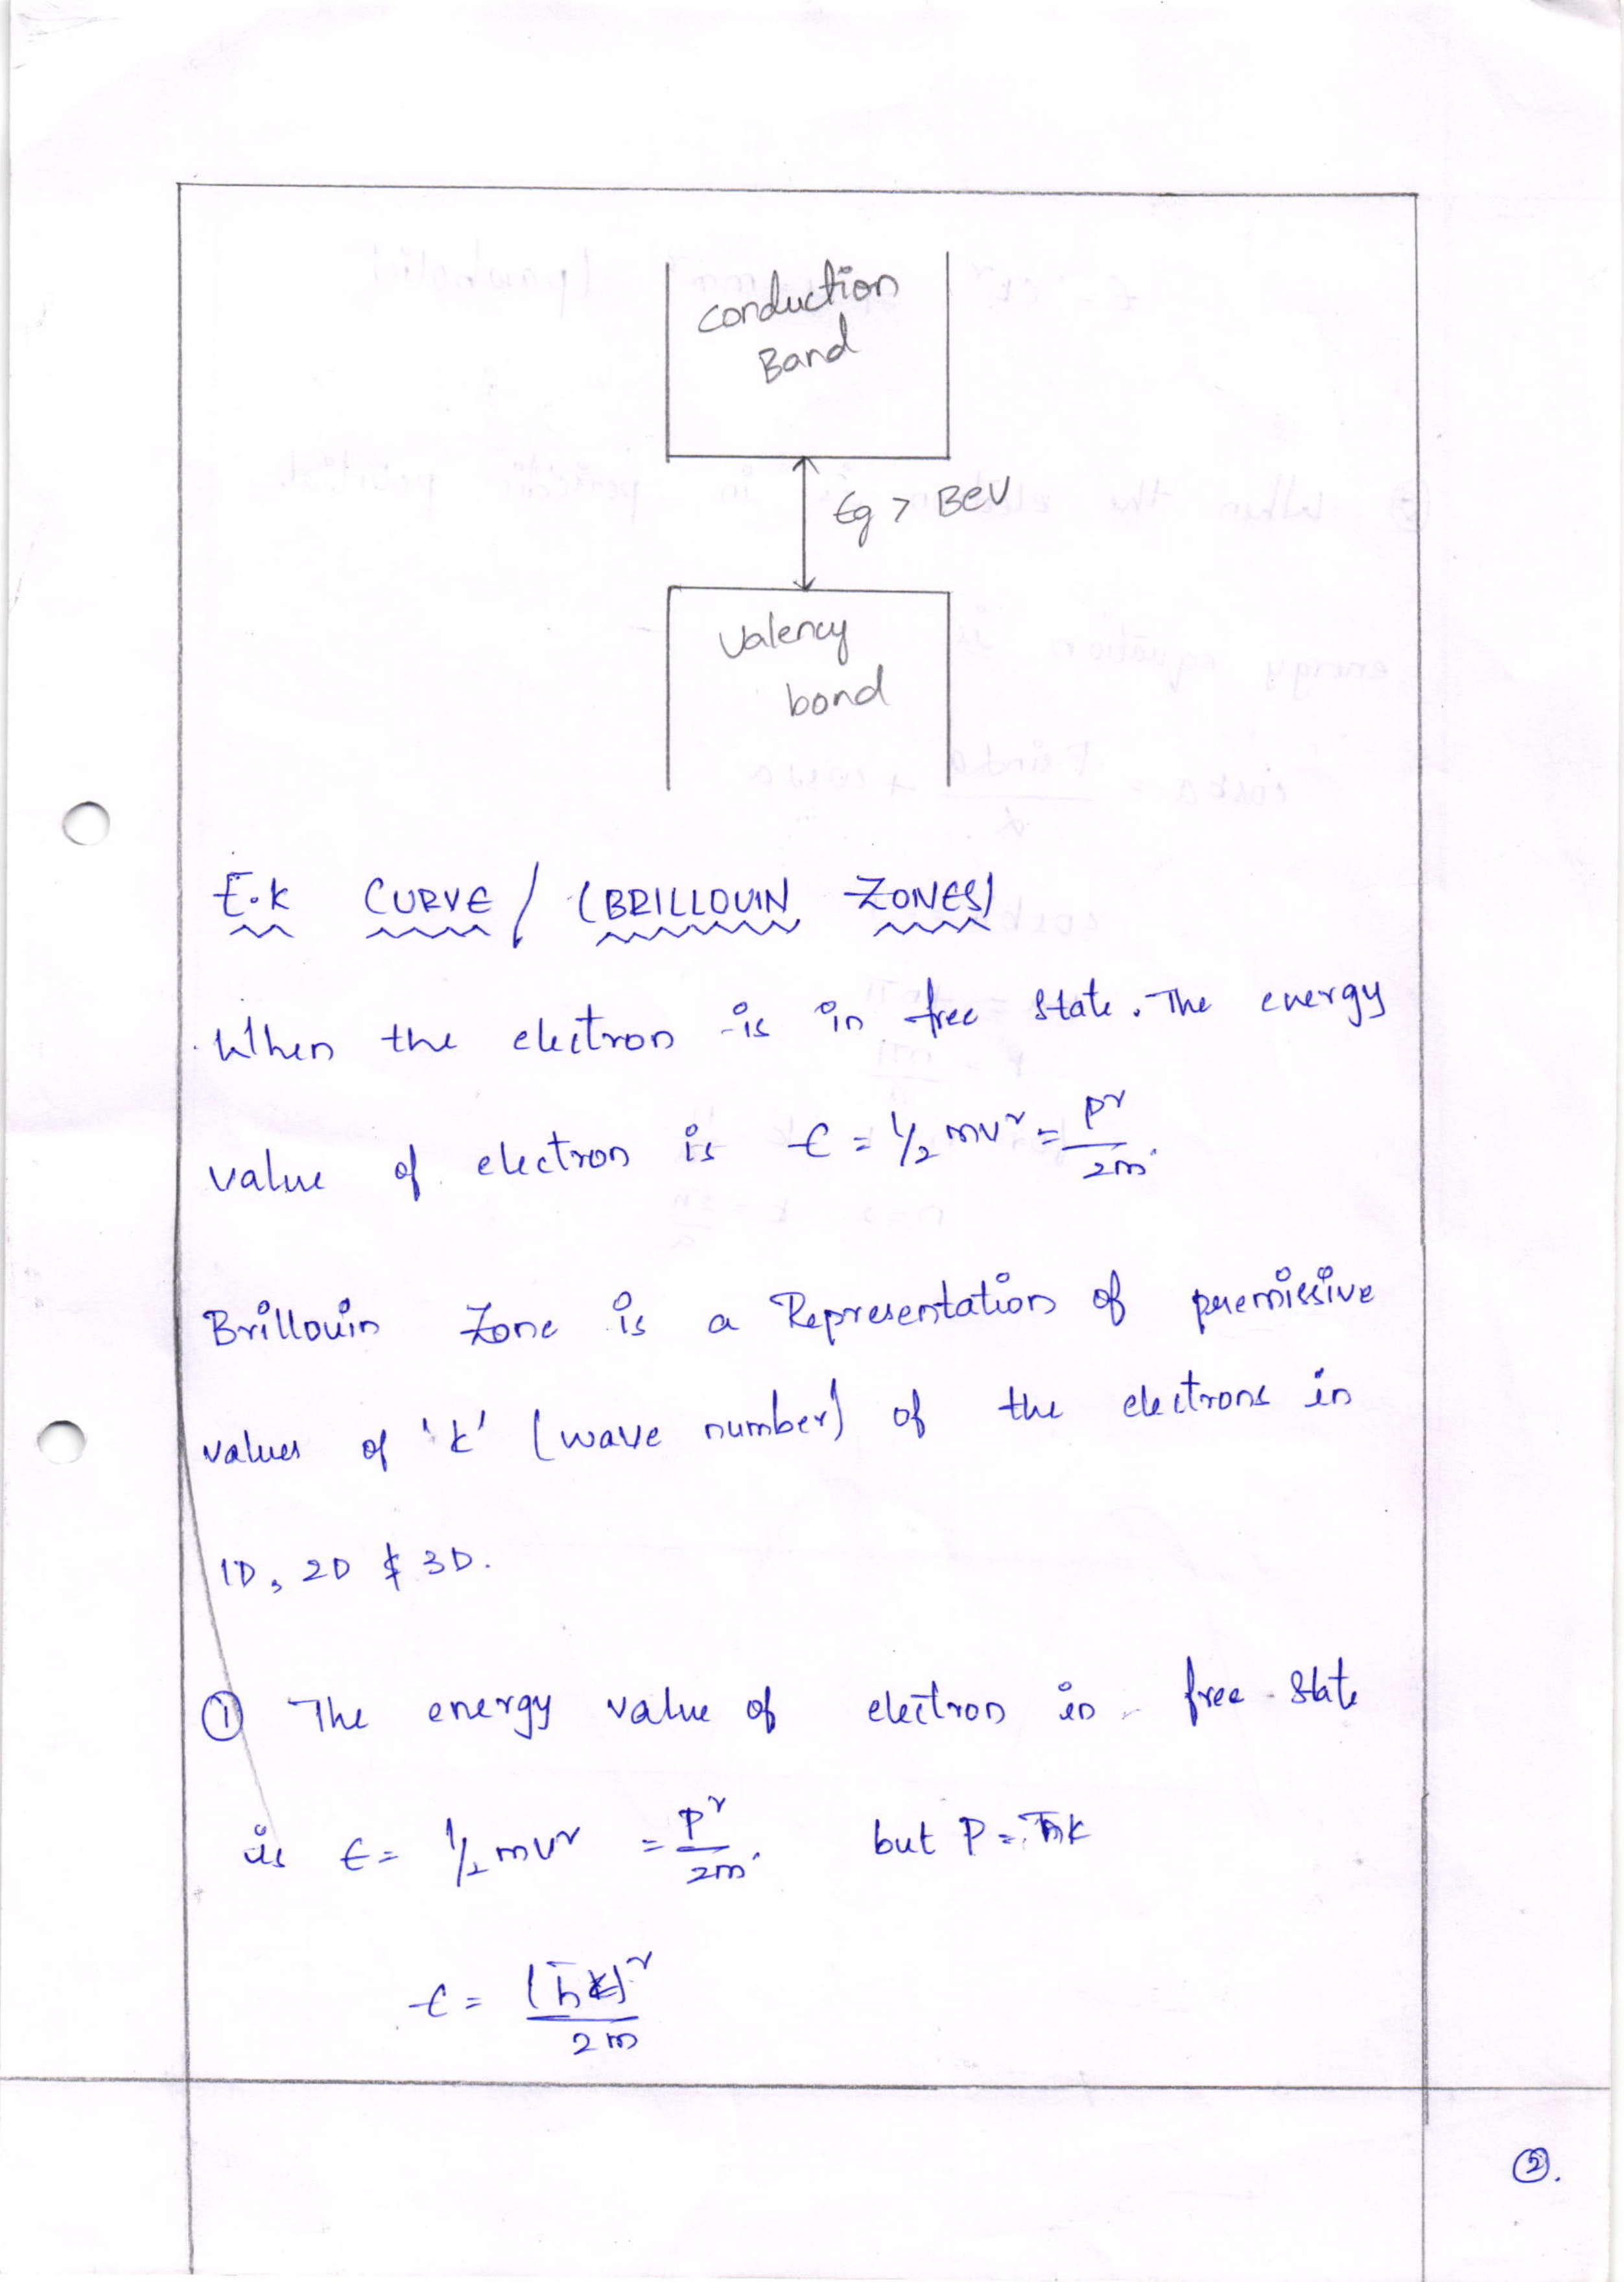 conduction
Band
Eg > BeV
Valency
bond
E.k CURVE / (BRILLOUIN ZONES)
When the electron is in free state. The energy
value of electron is E = 1/2 mv² = p²/2m.
Brillouin Zone is a Representation of peremissive
values of 'k' (wave number) of the electrons in
1D, 2D & 3D.
① The energy value of electron in free state
is E = 1/2 mv² = p²/2m. but P = ħk
E = (ħk)²/2m
②.